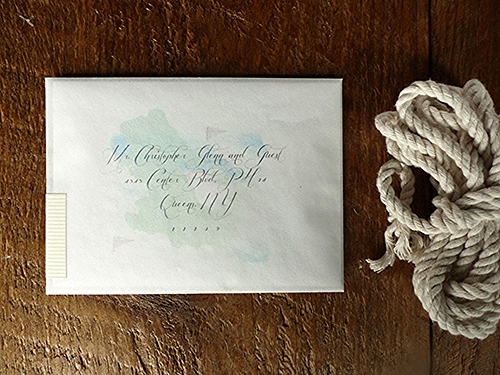 Mr. Christopher Glenn and Guest
Center Blvd. PH
Queens, NY